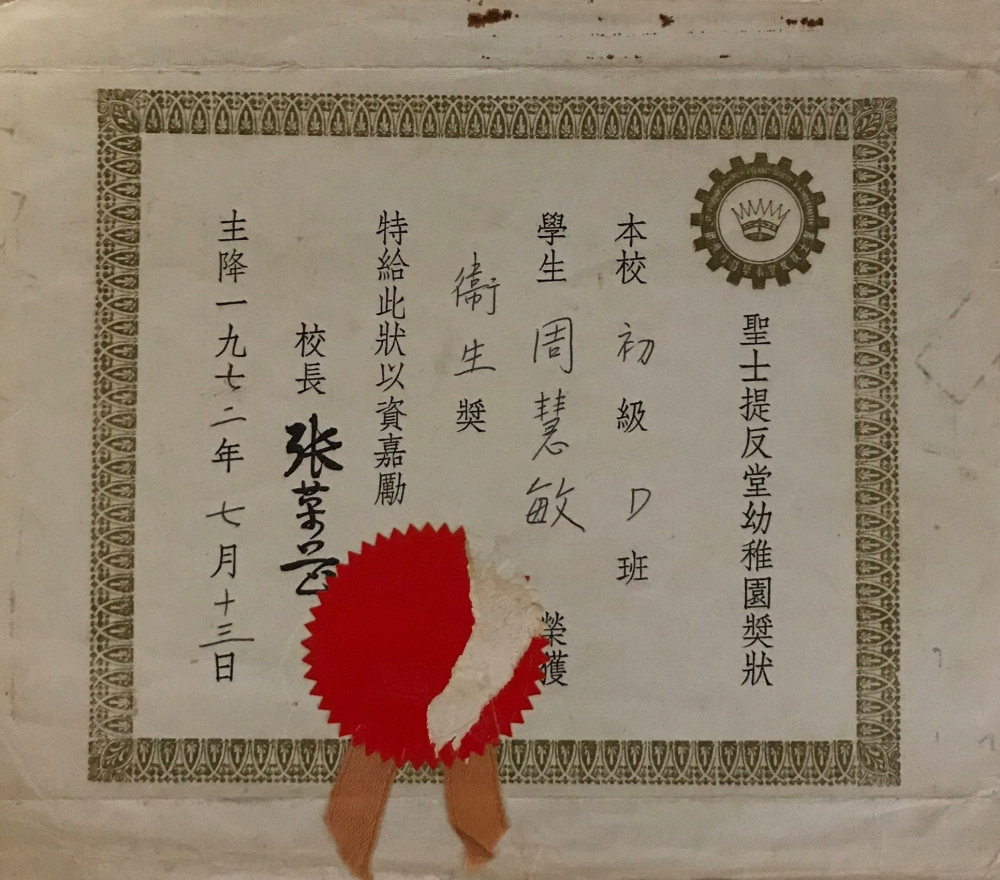 聖士提反堂幼稚園獎狀
本校初級D班
學生周慧敏榮獲
衞生獎
特給此狀以資嘉勵
校長張
主降一九七二年七月十三日